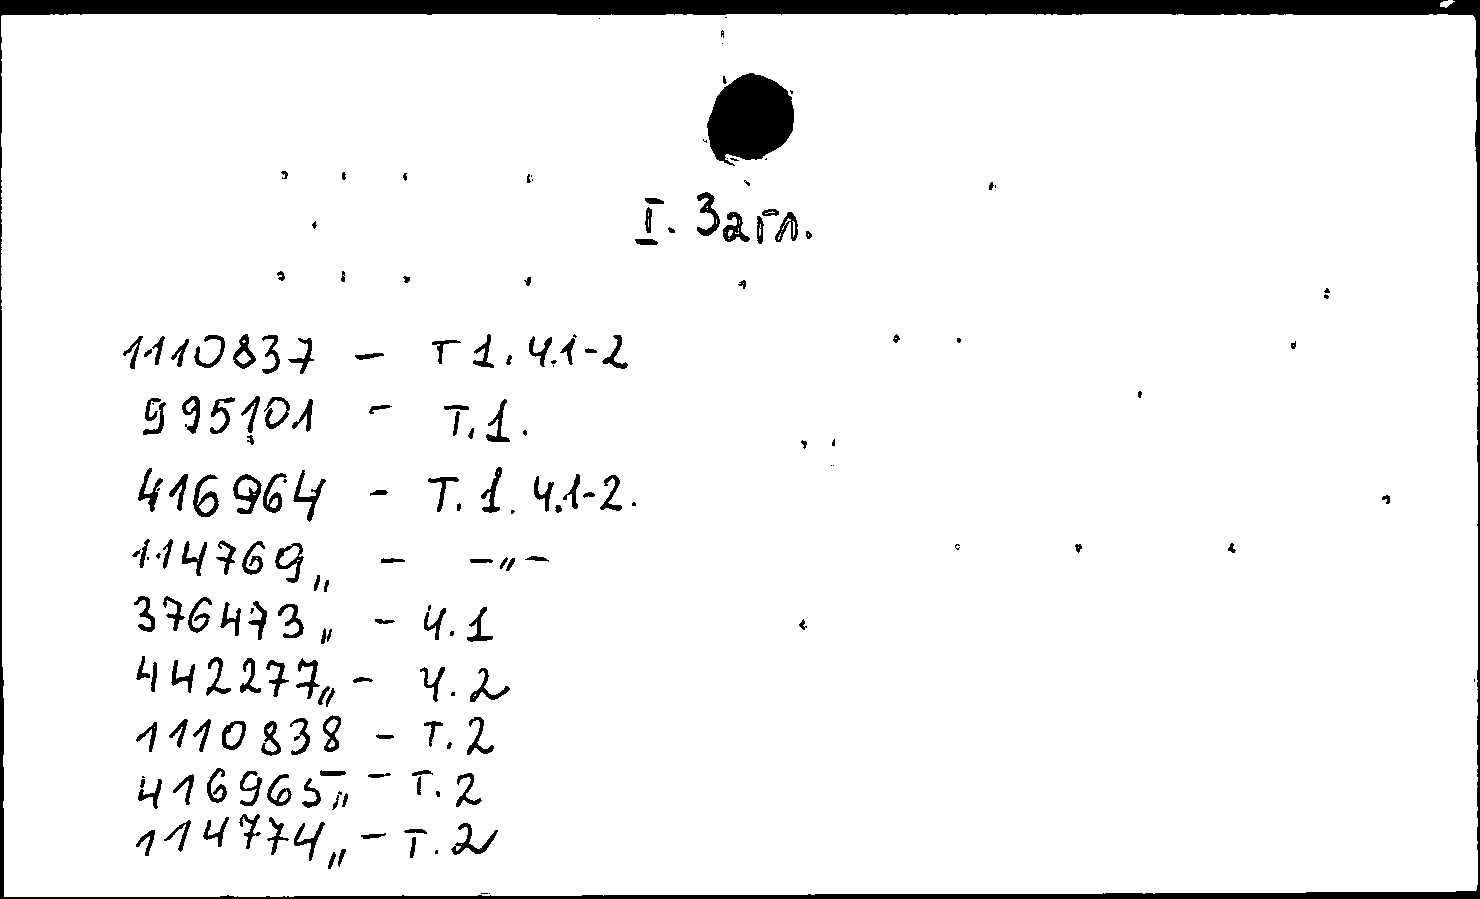 I. Загл.
1110837 – Т 1. ч.1-2
995101 – Т.1.
416964 – Т.1. ч.1-2.
114769„ – –„–
376473„ – ч.1
442277„ – ч.2
1110838 – Т.2
416965„ – Т.2
114774„ – Т.2